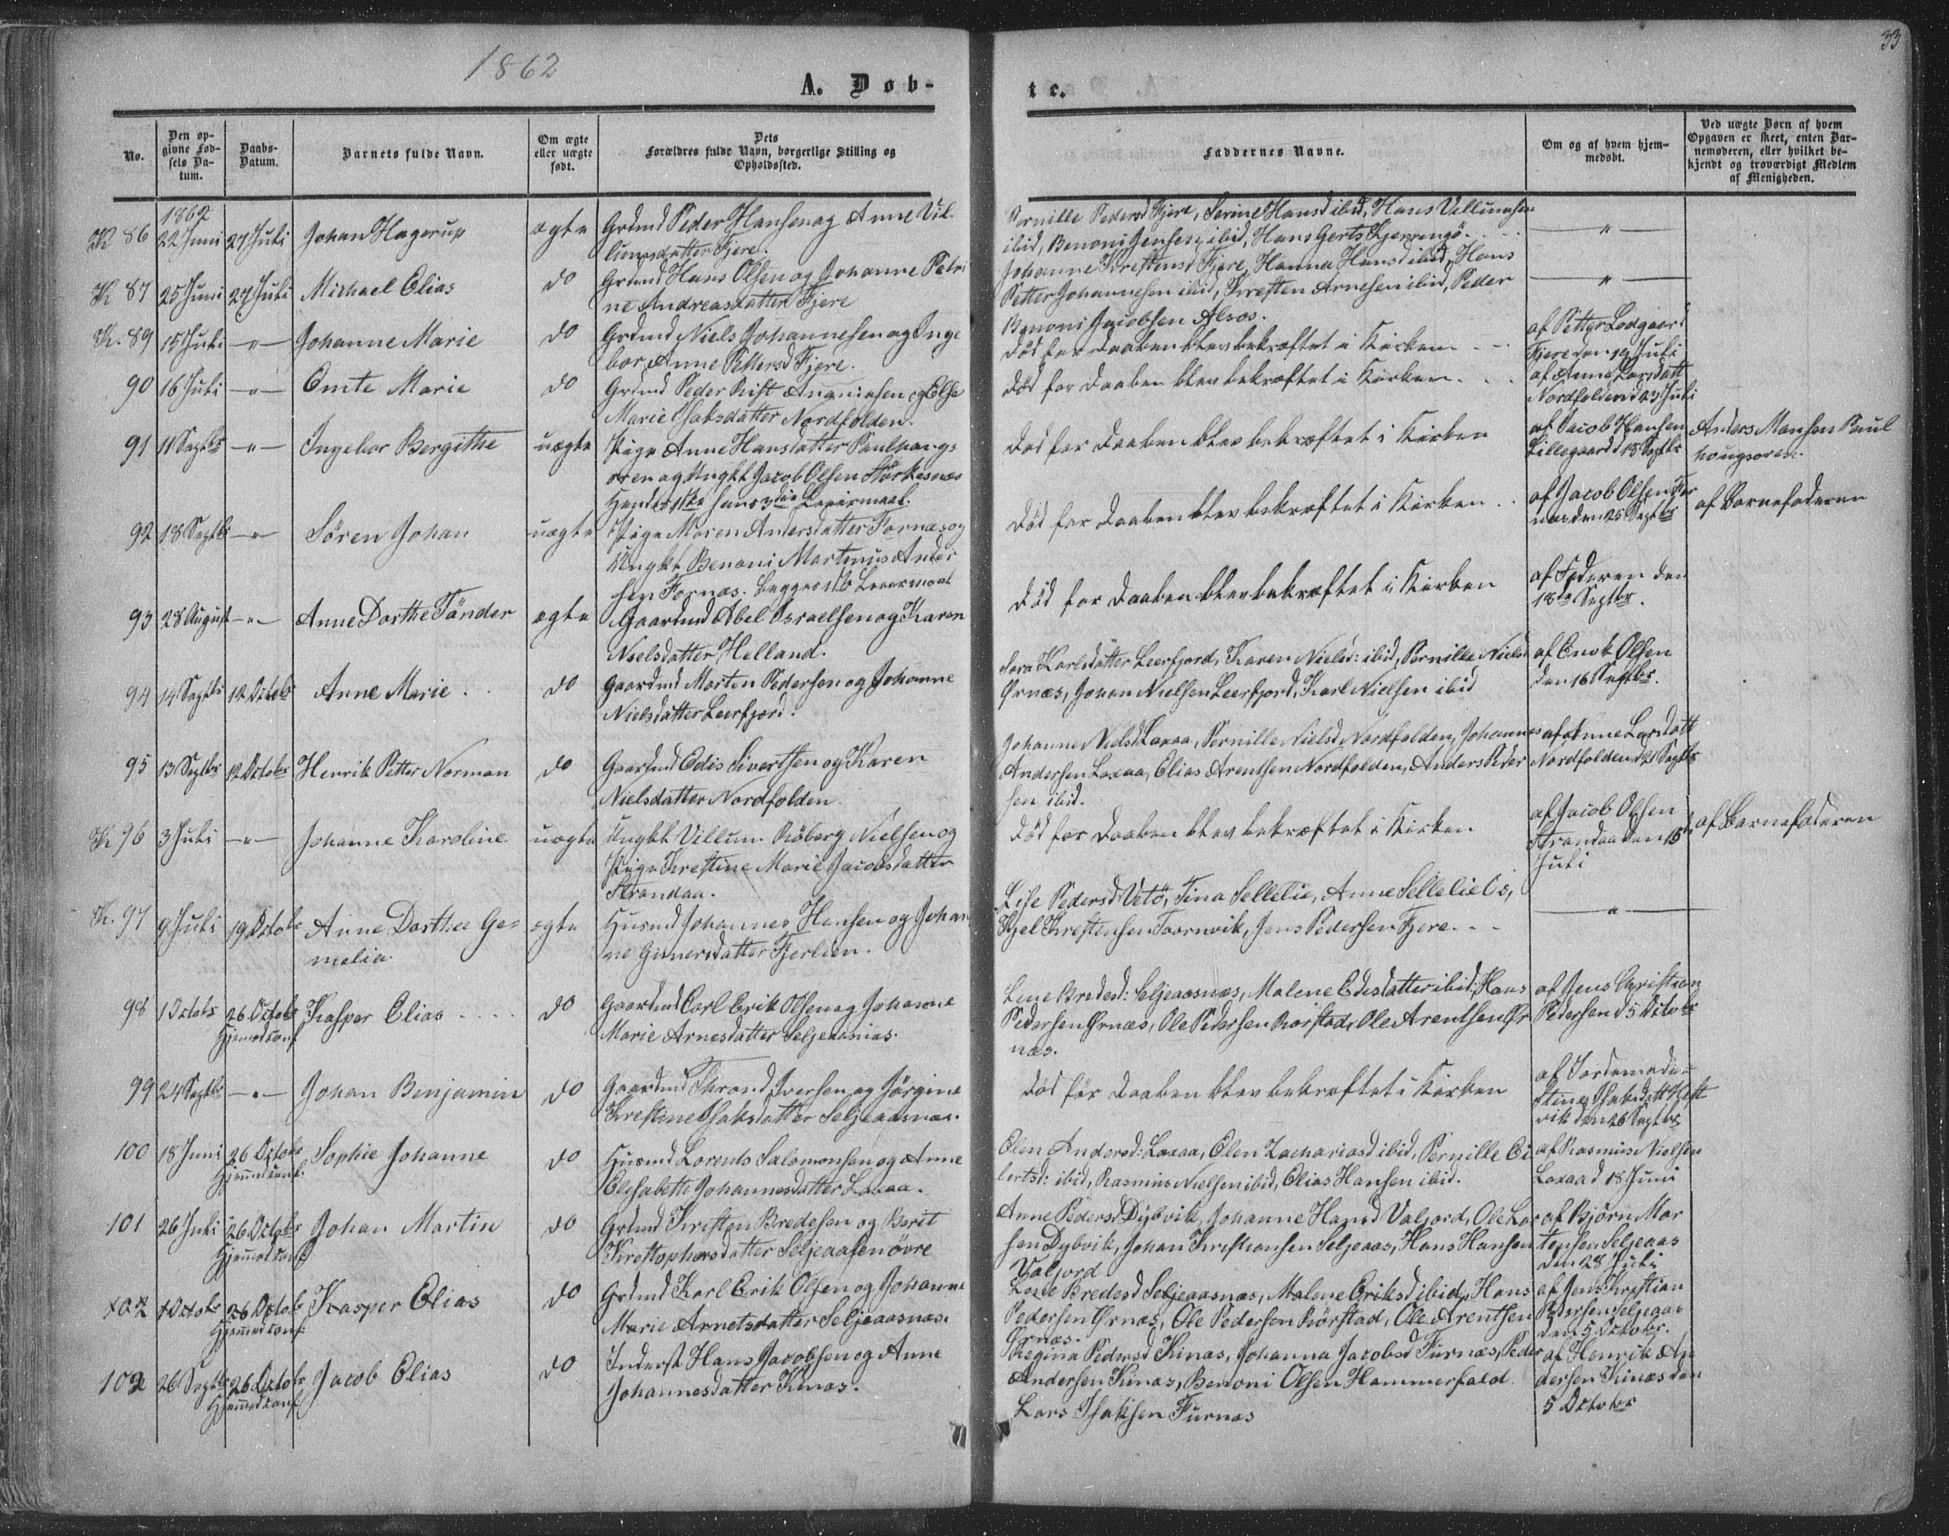 33
1862
A. Døb-
te.
No.
Den op-
givne Fød-
sels Da-
tum.
Daabs-
Datum.
Barnets fulde Navn.
Om ægte
eller uægte
født.
Dets
Forældres fulde Navn, borgerlige Stilling og
Opholdssted.
Faddernes Navne.
Om og af hvem hjem-
medøbt.
Ved uægte Børn af hvem
Opgaven er skeet, enten Bar-
nemoderen, eller hvilket be-
kjendt og troværdigt Medlem
af Menigheden.
1862
K 86 22 Juni 27 Juli Johan Hagerup ægte Grdmd Peder Hansen og Anne Vil-
lumsdatter Fjere.
Pernille Pedersd Fjere, Serine Hansd ibid, Hans Villumsen
ibid, Benoni Jensen ibid, Hans Gerts Kjerringø.
K 87 25 Juni 27 Juli Michael Elias do Grdmd Hans Olsen og Johanne Petri
ne Andreasdatter Fjere
Johanne Kristensd Fjere, Hanna Hansd ibid, Hans
Petter Johannesen ibid, Kresten Arnesen ibid, Peder
Benoni Jacobsen Alsos.
K. 89 15 Juli -"- Johanne Marie do Grdmd Niels Johannesen og Inge
bor Anne Pettersd Fjere.
død før Daaben blev bekræftet i Kirken
af Petter Lodgaard
Fjere den 19 Juli
90 16 Juli -"- Emte Marie do Grdmd Peder Rist Ananiasen og Else
Marie Isaksdatter Nordfolden.
død før Daaben blev bekræftet i Kirken.
af Anne Larsdatt
Nordfolden d 23 Juli
91 11 Septbr -"- Ingebor Bergithe uægte Pige Anne Hansdatter Paulhaugs
øren og Ungkl Jacob Olsen Størkesnæs
Hendes 1ste hans 3die Leiermaal.
død før Daaben blev bekræftet i Kirken
af Jacob Hansen
Lillegaard d 18 Septbr
Anders Monsen Paul
haugsøren.
92 18 Septbr -"- Søren Johan uægte Pige Maren Andersdatter Fornæs og
Ungkl Benoni Martinus Ander
sen Fornæs. begges 1ste Leiermaal
død før Daaben blev bekræftet i Kirken
af Jacob Olsen For
næs den 25 Septbr
af Barnefaderen
93 28 August -"- Anne Dorthe Tønder ægte Gaardmd Abel Israelsen og Karen
Nielsdatter Helland.
død før Daaben blev bekræftet i Kirken
af Faderen den
18de Septbr.
94 14 Septbr 12 Octobr Anne Marie do Gaardmd Morten Pedersen og Johanne
Nielsdatter Leerfjord.
Sara Karlsdatter Leerfjord, Karen Nielsd: ibid, Pernille Nielsd
Ørnæs, Johan Nielsen Leerfjord, Karl Nielsen ibid
af Enok Olsen
den 16 Septbr.
95 13 Septbr 12 Octobr Henrik Petter Norman do Gaardmd Edis Sivertsen og Karen
Nielsdatter Nordfolden.
Johanne Nielsd Laxaa, Pernille Nielsd Nordfolden, Johannes
Andersen Laxaa, Elias Arentsen Nordfolden, Anders Peder
sen ibid.
af Anne Larsdatt
Nordfolden d 21 Septbr
K 96 3 Juli -"- Johanne Karoline uægte Ungkl Villum Røberg Nielsen og
Pige Krestine Marie Jacobsdatter
Strandaa.
død før Daaben blev bekræftet i Kirken
af Jacob Olsen
Strandaa den 15
Juli
af Barnefaderen
K. 97 9 Juli 19 Octobr Anne Dorthea Ge-
melia.
ægte Husmd Johannes Hansen og Johan
ne Gunersdatter Fjerlien.
Lise Pedersd Vetø, Tina Selletie, Anne Selletie
Kjel Krestensen Toornvik, Jens Pedersen Fjere.
98 1 Octobr 26 Octobr Kasper Elias do Gaardmd Carl Erik Olsen og Johanne
Hjemmed conf
Marie Arnesdatter Seljeaasnæs.
Lene Bredesd: Seljeaasnæs, Malene Edisdatter ibid, Hans
Pedersen Ørnæs, Ole Pedersen Rørstad, Ole Arentsen Ør
næs.
af Jens Christian
Pedersen d 5 Octobr
99 24 Septbr -"- Johan Benjamin do Gaardmd Thrond Iversen og Jørgine
Krestine Isaksdatter Seljeaasnæs.
død før Daaben blev bekræftet i Kirken
af Jordemoder
Stine Isaksdatt
vik den 26 Septbr
100 18 Juni 26 Octobr Sophie Johanne do Husmd Lorents Salomonsen og Anne
Hjemmed conf.
Elisabeth Johannesdatter Laxaa.
Elen Andersd: Laxaa, Elen Zachariasd ibid, Pernille Ei
lertsd: ibid, Rasmus Nielsen ibid, Elias Hansen ibid.
af Rasmus Nielsen
Laxaa d 18 Juni
101 26 Juli 26 Octobr Johan Martin do Grdmd Kresten Bredesen og Berit
Hjemmed conf
Kristophersdatter Seljeaasen øvre
Anne Pedersd Dybvik, Johanne Hansd Valjord, Ole Lar
sen Dybvik, Johan Kristiansen Seljeaas, Hans Hansen
Valjord
af Bjørn Mor
tensen Seljeaas
den 28 Juli
102 1 Octobr 26 Octobr Kasper Elias do Grdmd Karl Erik Olsen og Johanne
Hjemmed conf.
Marie Arnetsdatter Seljeaasnæs.
Lene Bredesd Seljeaasnæs, Malene Eriksd ibid, Hans
Pedersen Ørnæs, Ole Pedersen Rørstad, Ole Arentsen
Ørnæs.
af Jens Kristian
Pedersen Seljeaas
den 5 Octobr.
102 26 Septbr 26 Octobr Jacob Elias do Inderst Hans Jacobsen og Anne
Hjemmed conf
Johannesdatter Kinæs.
Regina Pedersd Kinæs, Johanna Jacobsd Furnæs, Peder
Andersen Kinæs, Benoni Olsen Hammerfald
Lars Isaksen Furnæs
af Henrik An
dersen Kinæs den
5 Octobr